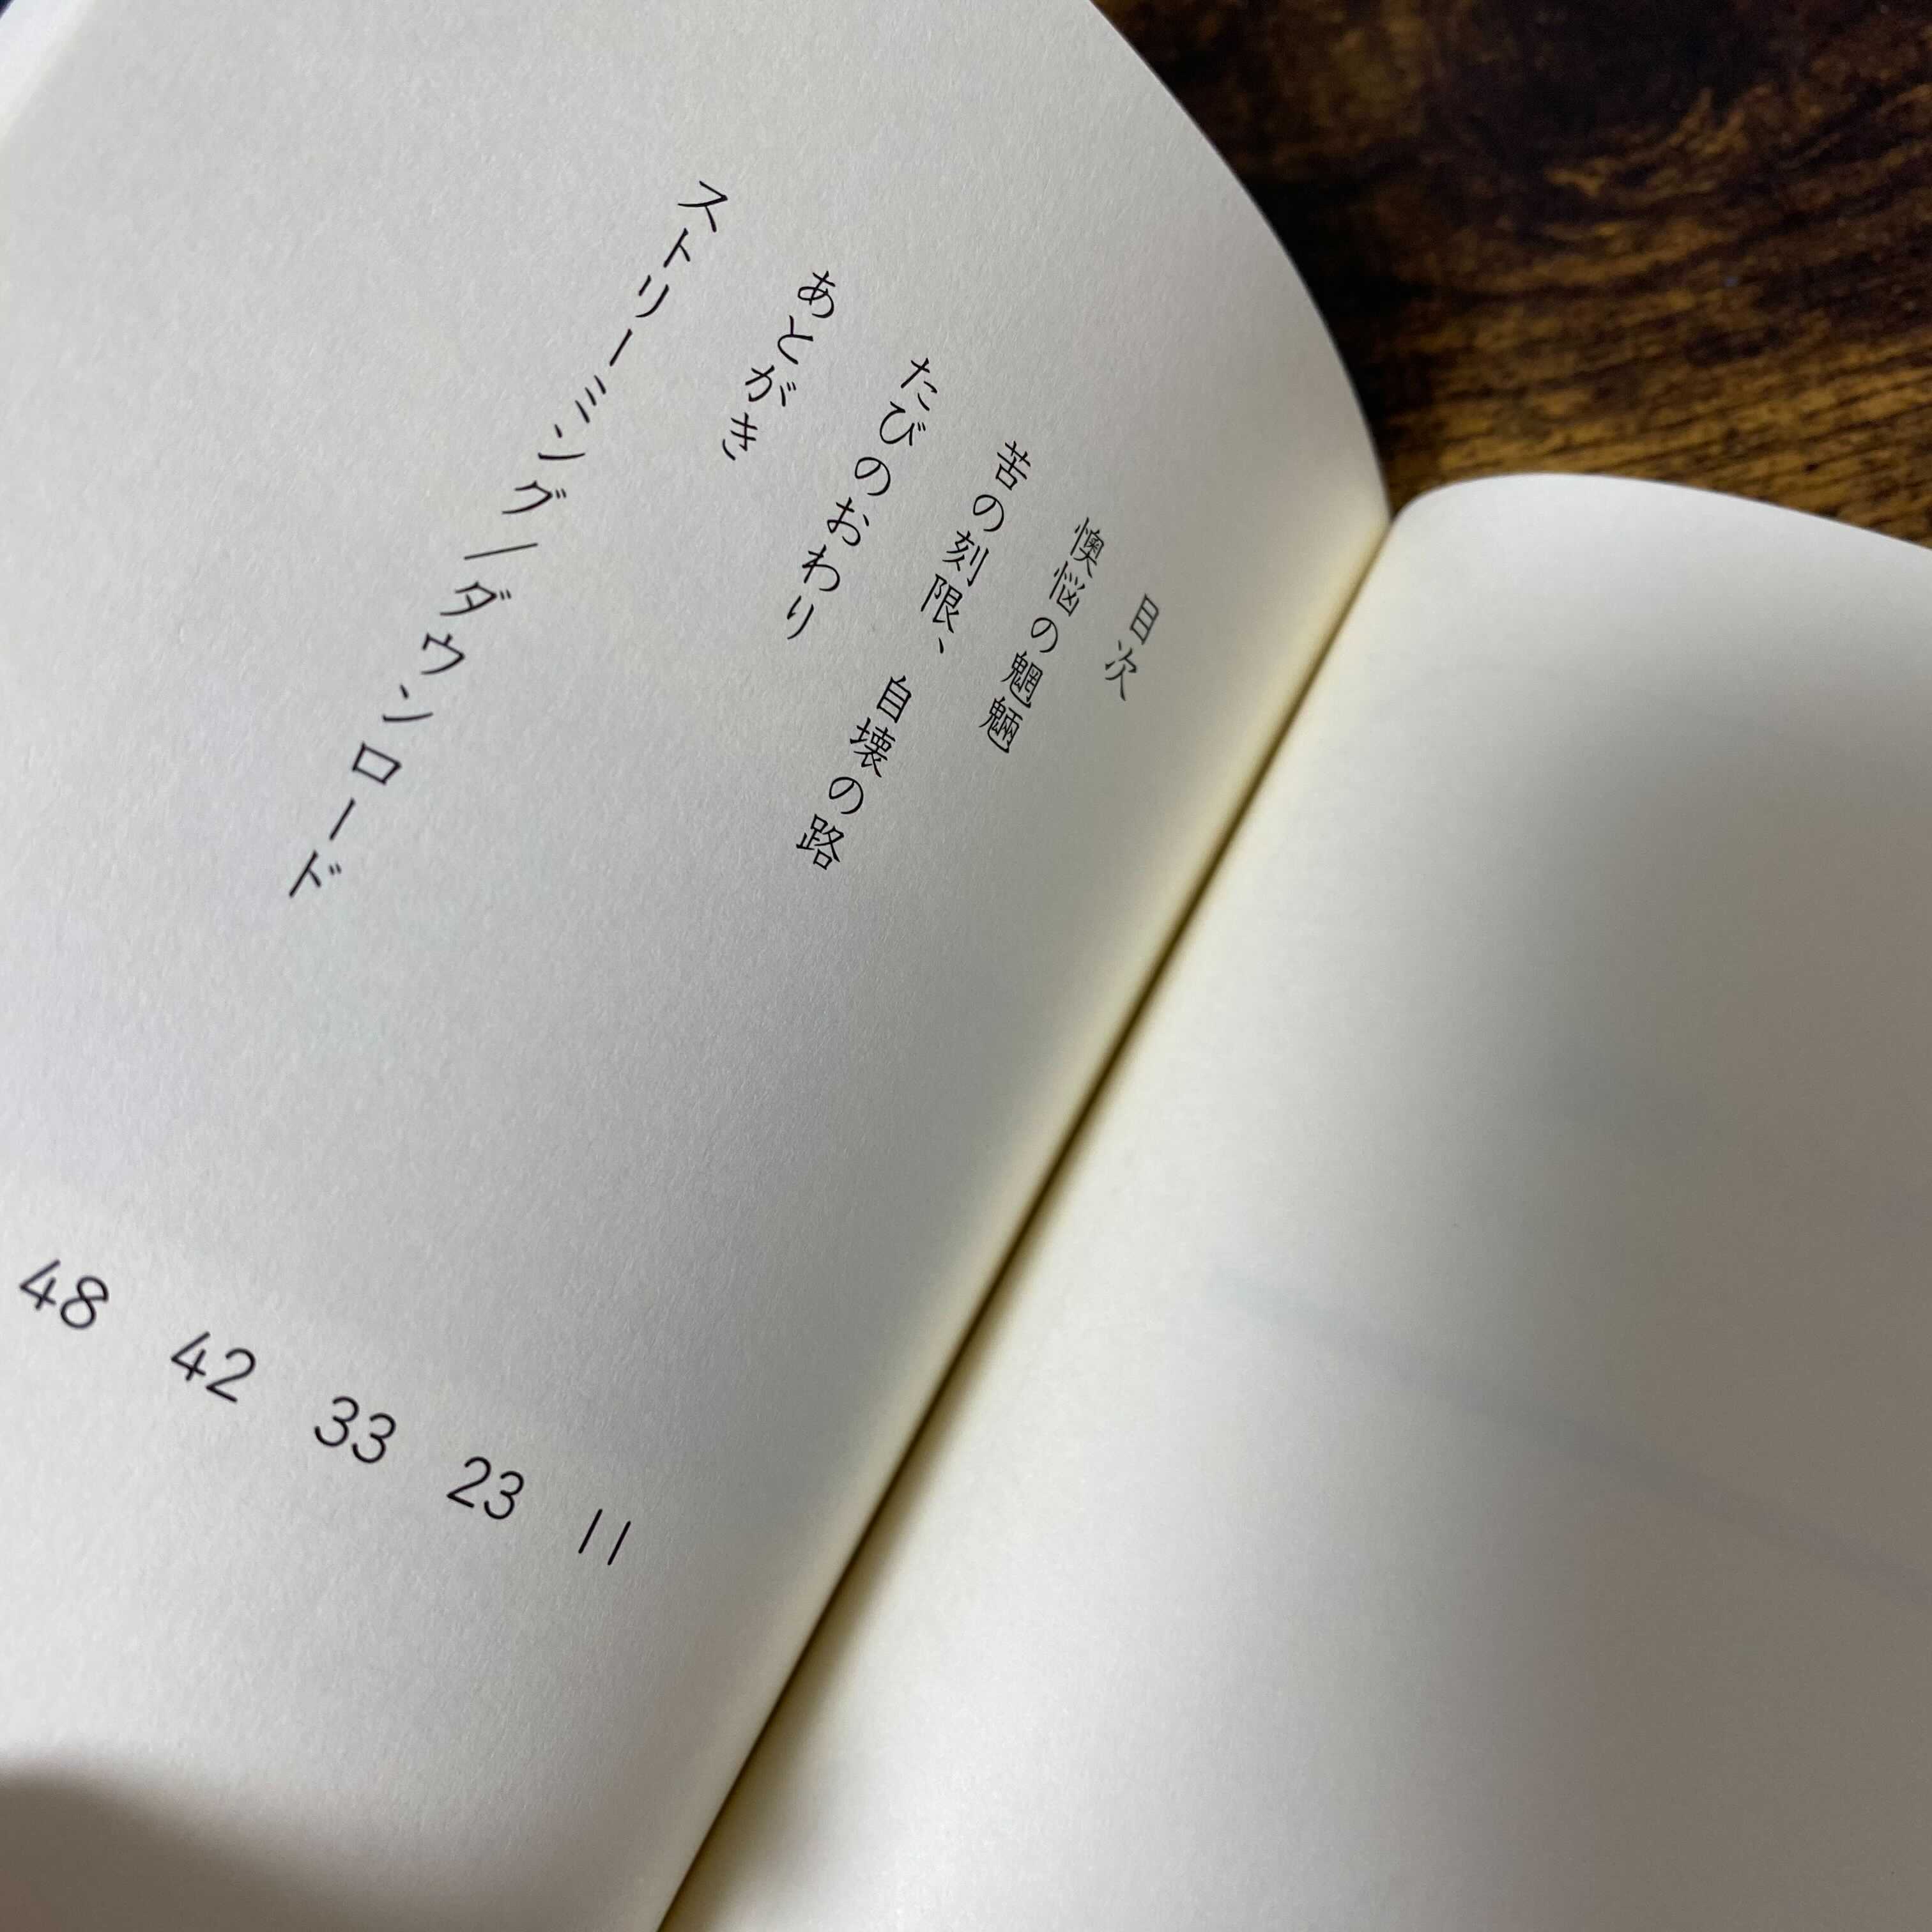 目次
懊悩の魍魎 11
苦の刻限、自壊の路 23
たびのおわり 33
あとがき 42
ストリーミング/ダウンロード 48